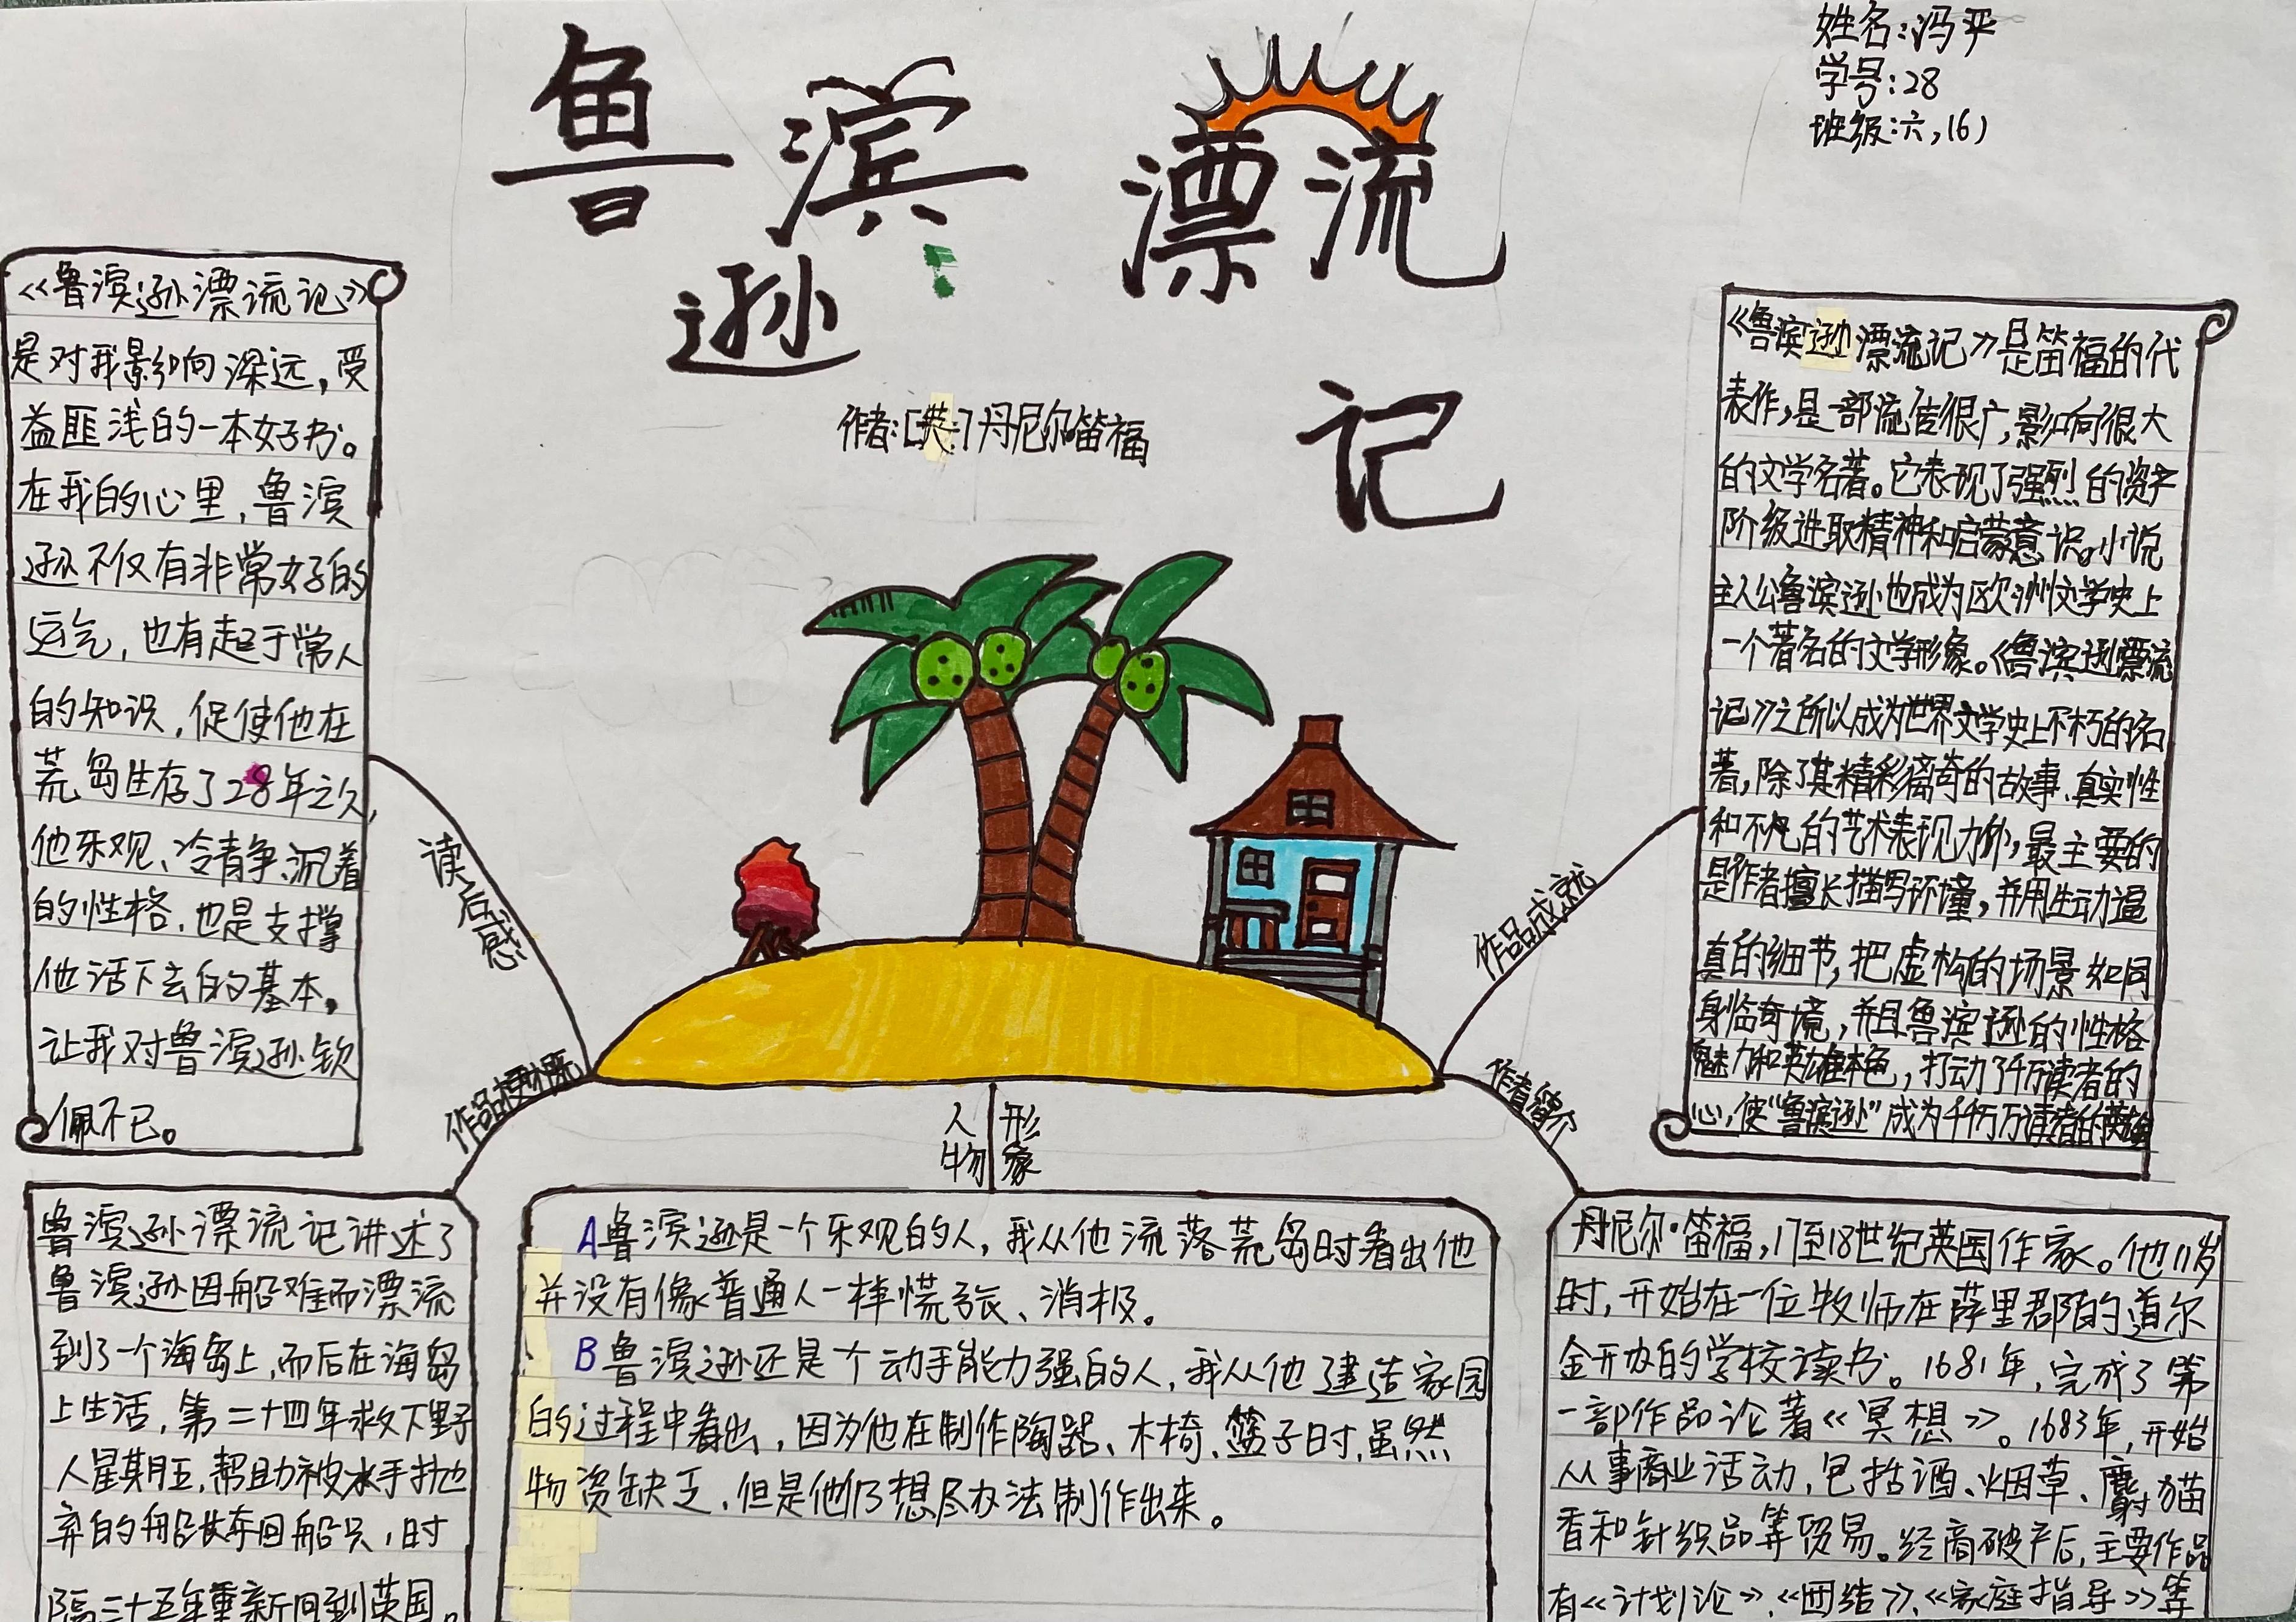 姓名:冯平
学号:28
班级:六,(6)
鲁滨逊漂流记
作者:[英]丹尼尔笛福
《鲁滨逊漂流记》
是对我影响深远,受
益匪浅的一本好书。
在我的心里,鲁滨
逊不仅有非常好的
运气,也有起于常人
的知识,促使他在
荒岛生存了28年之久,
他乐观、冷青争、沉着
的性格、也是支撑
他活下去的基本,
让我对鲁滨逊钦
佩不已。
读后感
作品梗概
作品成就
作者简介
人物形象
《鲁滨逊漂流记》是笛福的代
表作,是一部流传很广,影响很大
的文学名著。它表现了强烈的资产
阶级进取精神和启蒙意识。小说
主人公鲁滨逊也成为欧洲文学史上
一个著名的文学形象。《鲁滨逊漂流
记》之所以成为世界文学史上不朽的名
著,除了其精彩离奇的故事、真实性
和不凡的艺术表现力外,最主要的
是作者擅长描写环境,并用生动逼
真的细节,把虚构的场景如同
身临奇境,并且鲁滨逊的性格
魅力和英雄本色,打动了千万读者的
心,使“鲁滨逊”成为千千万万读者的英雄
鲁滨逊漂流记讲述了
鲁滨逊因船难而漂流
到了一个海岛上,而后在海岛
上生活,第二十四年救下野
人星期五,帮助被水手抛
弃的船长夺回船只,时
隔三十五年重新回到英国。
A鲁滨逊是一个乐观的人,我从他流落荒岛时看出他
并没有像普通人一样慌张、消极。
B鲁滨逊还是个动手能力强的人,我从他建造家园
的过程中看出,因为他在制作陶器、木椅、篮子时,虽然
物资缺乏,但是他仍想尽办法制作出来。
丹尼尔·笛福,17至18世纪英国作家。他11岁
时,开始在一位牧师在萨里郡的道尔
金开办的学校读书。1681年,完成了第
一部作品论著《冥想》。1683年,开始
从事商业活动,包括酒、烟草、麝猫
香和针织品等贸易。经商破产后,主要作品
有《计划论》、《团结》、《家庭指导》等